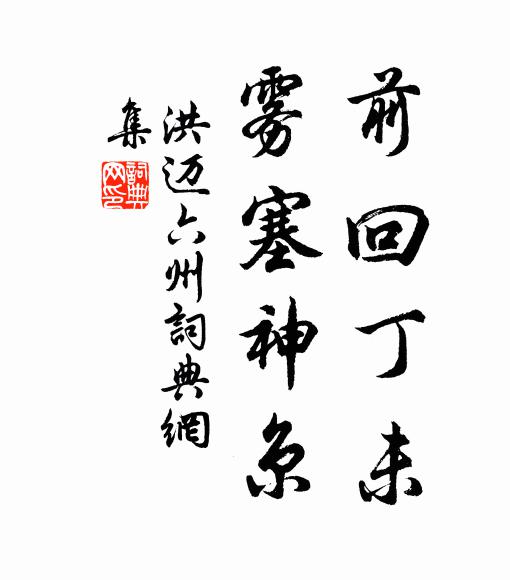 前回丁未
雾塞神京
洪迈六州詞典網
集
詞典
网印